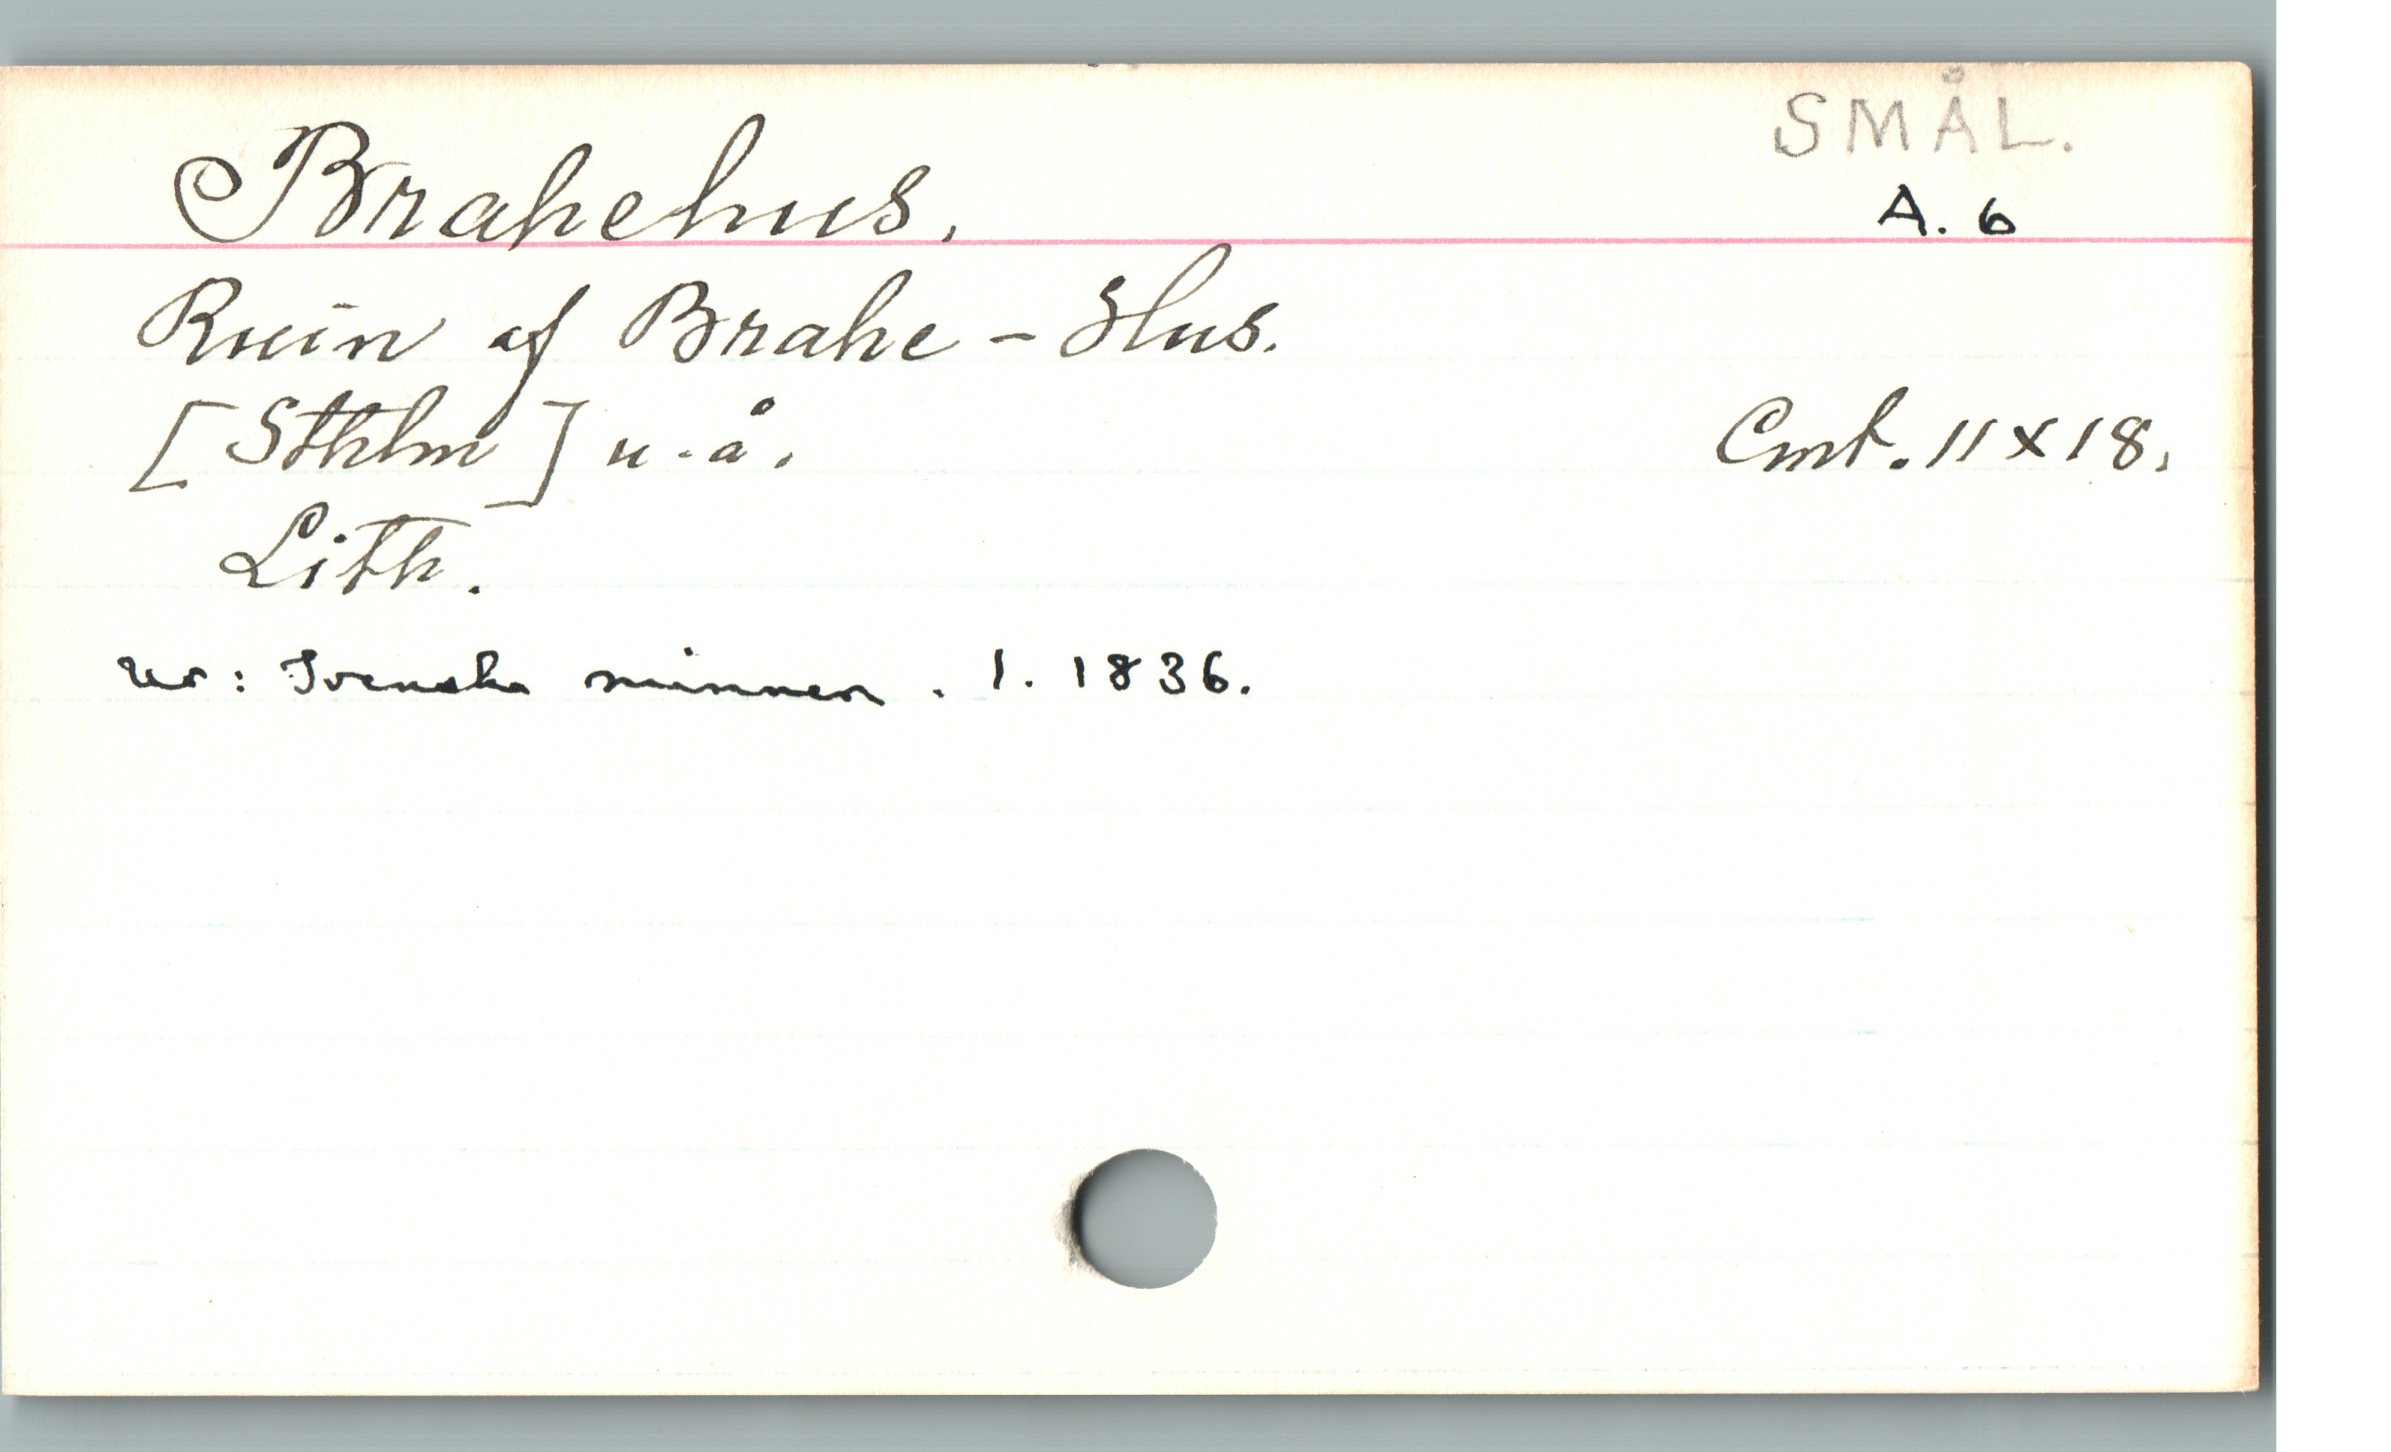 SMÅL.
Brahehus.
A. 6
Ruin af Brahe-Hus.
[Sthlm] u.å.
Cmt. 11 x 18.
Lith.
ur: Svenska minnen. 1. 1836.